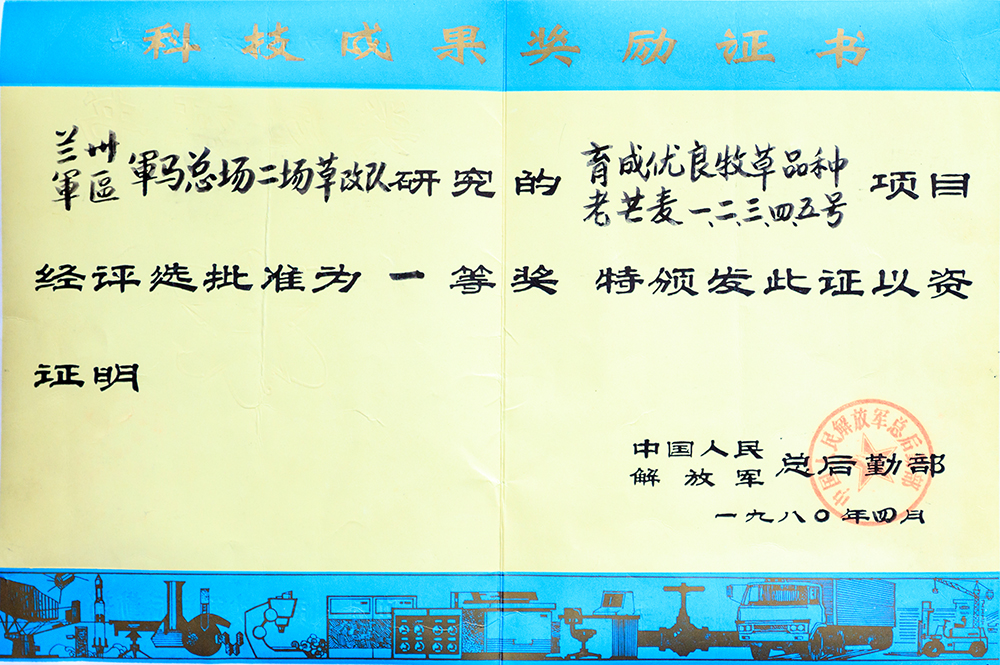 科技成果奖励证书
兰州軍區 軍马总场二场草改队研究的 育成优良牧草品种老芒麦一、二、三、四、五号 项目
经评选批准为一等奖 特颁发此证以资
证明
中国人民解放军 总后勤部
中国人民解放军总后勤部
一九八〇年四月